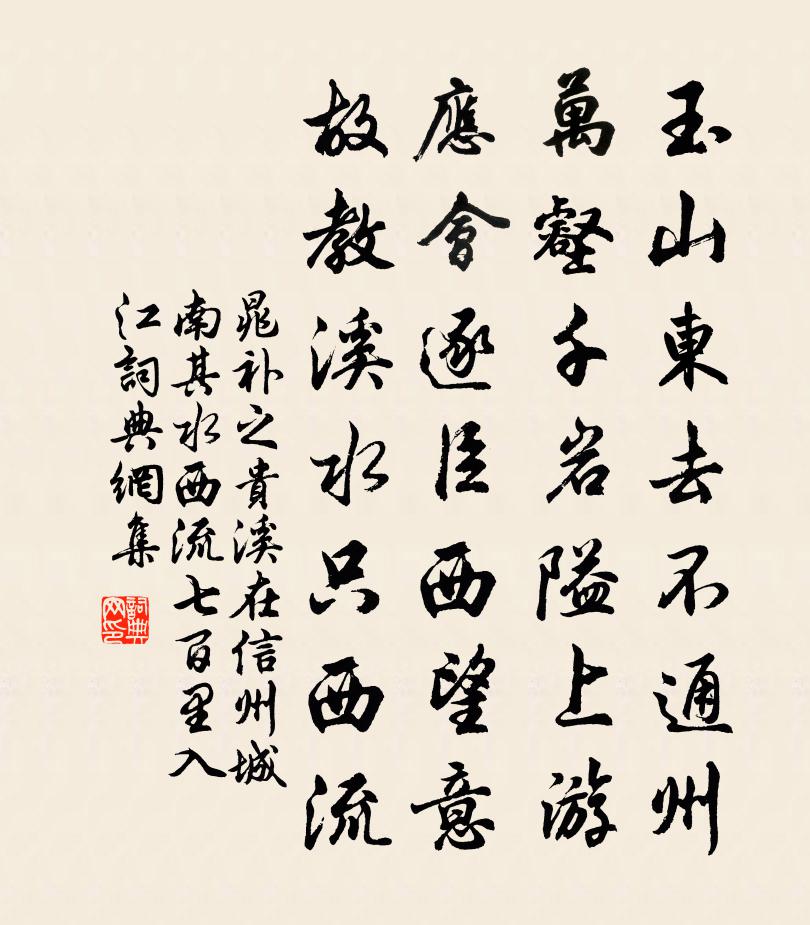 玉山東去不通州
萬壑千岩隘上游
應會逐臣西望意
故教溪水只西流
晁补之貴溪在信州城
南其水西流七百里入
江詞典網集
詞典
网印